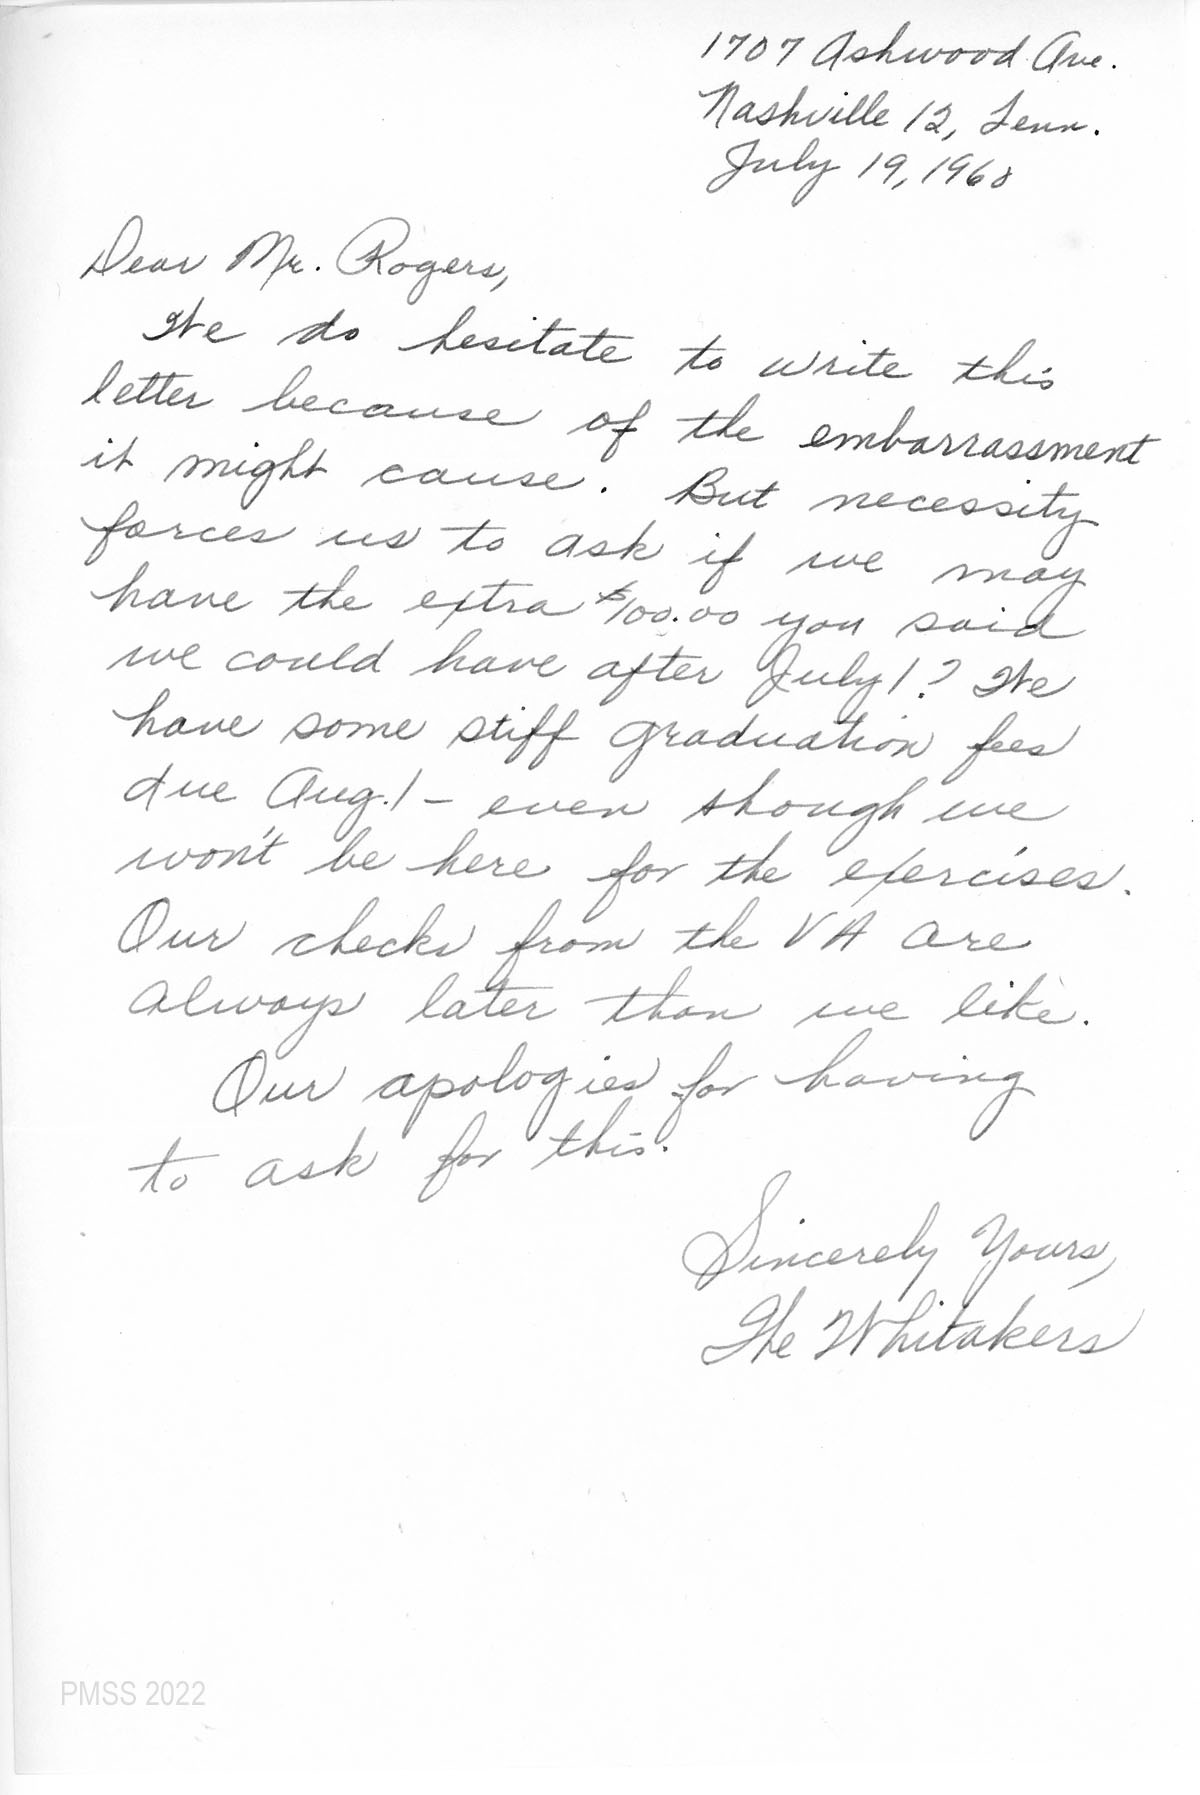 1707 Ashwood Ave.
Nashville 12, Tenn.
July 19, 1960
Dear Mr. Rogers,
We do hesitate to write this
letter because of the embarrassment
it might cause. But necessity
forces us to ask if we may
have the extra $100.00 you said
we could have after July 1? We
have some stiff graduation fees
due Aug. 1 – even though we
won't be here for the exercises.
Our checks from the VA are
always later than we like.
Our apologies for having
to ask for this.
Sincerely Yours,
The Whitakers
PMSS 2022